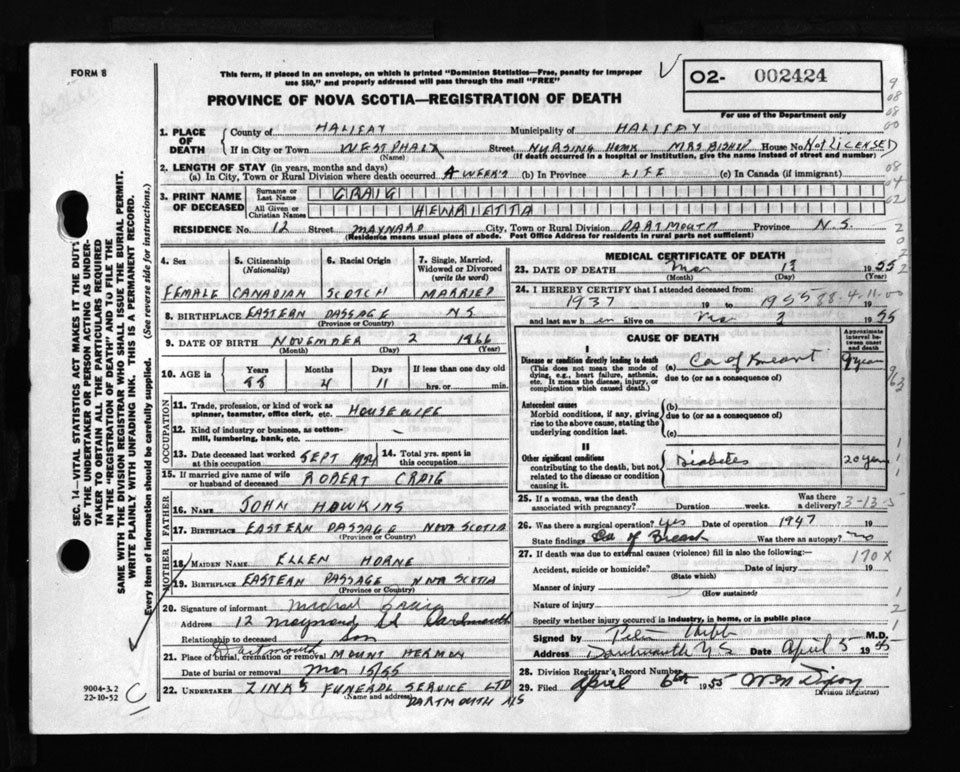 FORM 8
This form, if placed in an envelope, on which is printed "Dominion Statistics—Free, penalty for improper
use $50," and properly addressed will pass through the mail "FREE"
O2- 002424
For use of the Department only
PROVINCE OF NOVA SCOTIA—REGISTRATION OF DEATH
1. PLACE OF DEATH County of HALIFAX Municipality of HALIFAX
If in City or Town WESTPHAL Street NURSING HOME MRS BISHOP House No. NOT LICENSED
(Name) (If death occurred in a hospital or institution, give the name instead of street and number)
2. LENGTH OF STAY (in years, months and days)
(a) In City, Town or Rural Division where death occurred WEEKS (b) In Province LIFE (c) In Canada (if immigrant)
3. PRINT NAME OF DECEASED Surname or Last Name CRAIG
All Given or Christian Names HENRIETTA
RESIDENCE No. 12 Street MAYNARD City, Town or Rural Division DARTMOUTH Province N.S.
(Residence means usual place of abode. Post Office Address for residents in rural parts not sufficient)
SEC. 14—VITAL STATISTICS ACT MAKES IT THE DUTY
OF THE UNDERTAKER OR PERSON ACTING AS UNDER-
TAKER TO OBTAIN ALL THE PARTICULARS REQUIRED
IN THE "REGISTRATION OF DEATH" AND TO FILE THE
SAME WITH THE DIVISION REGISTRAR WHO SHALL ISSUE THE BURIAL PERMIT.
WRITE PLAINLY WITH UNFADING INK. THIS IS A PERMANENT RECORD.
Every item of information should be carefully supplied. (See reverse side for instructions.)
4. Sex 5. Citizenship (Nationality) 6. Racial Origin 7. Single, Married, Widowed or Divorced (write the word)
FEMALE CANADIAN SCOTCH MARRIED
8. BIRTHPLACE EASTERN PASSAGE N S
(Province or Country)
9. DATE OF BIRTH NOVEMBER 2 1866
(Month) (Day) (Year)
10. AGE is Years Months Days If less than one day old
88 4 11 hrs. or min.
OCCUPATION
11. Trade, profession, or kind of work as spinner, teamster, office clerk, etc. HOUSEWIFE
12. Kind of industry or business, as cotten-mill, lumbering, bank, etc. –
13. Date deceased last worked at this occupation SEPT 14. Total yrs. spent in this occupation
15. If married give name of wife or husband of deceased ROBERT CRAIG
FATHER
16. NAME JOHN HAWKINS
17. BIRTHPLACE EASTERN PASSAGE NOVA SCOTIA
(Province or Country)
MOTHER
18. MAIDEN NAME ELLEN HORNE
19. BIRTHPLACE EASTERN PASSAGE NOVA SCOTIA
(Province or Country)
20. Signature of informant Michael Craig
Address 12 Maynard St Dartmouth
Relationship to deceased Son
21. Place of burial, cremation or removal Dartmouth MOUNT HERMON
Date of burial or removal Mar 15/55
22. UNDERTAKER ZINK'S FUNERAL SERVICE LTD
(Name and address) DARTMOUTH N S
9004-3.2
22-10-52
C
MEDICAL CERTIFICATE OF DEATH
23. DATE OF DEATH Mar 13 1955
(Month) (Day) (Year)
24. I HEREBY CERTIFY that I attended deceased from:
1937 19 to 1955 88-4-11-00 19
and last saw h er alive on Mar 3 1955
CAUSE OF DEATH
Approximate interval between onset and death
I
Disease or condition directly leading to death (a) Ca of Breast 9 years
(This does not mean the mode of dying, e.g., heart failure, asthenia, etc. It means the disease, injury, or complication which caused death.)
due to (or as a consequence of)
Antecedent causes
Morbid conditions, if any, giving rise to the above cause, stating the underlying condition last.
(b)
due to (or as a consequence of)
(c)
II
Other significant conditions contributing to the death, but not related to the disease or condition causing it. Diabetes 20 years
25. If a woman, was the death associated with pregnancy? Duration weeks. Was there a delivery? 3-13-5
26. Was there a surgical operation? yes Date of operation 1947 19
State findings Ca of Breast Was there an autopsy? no
27. If death was due to external causes (violence) fill in also the following:—
170 X
Accident, suicide or homicide? Date of injury 19
(State which)
Manner of injury
(How sustained)
Nature of injury
Specify whether injury occurred in industry, in home, or in public place
Signed by M.D.
Address Dartmouth N S Date April 5 1955
28. Division Registrar's Record Number
29. Filed April 6th 1955
Division Registrar)